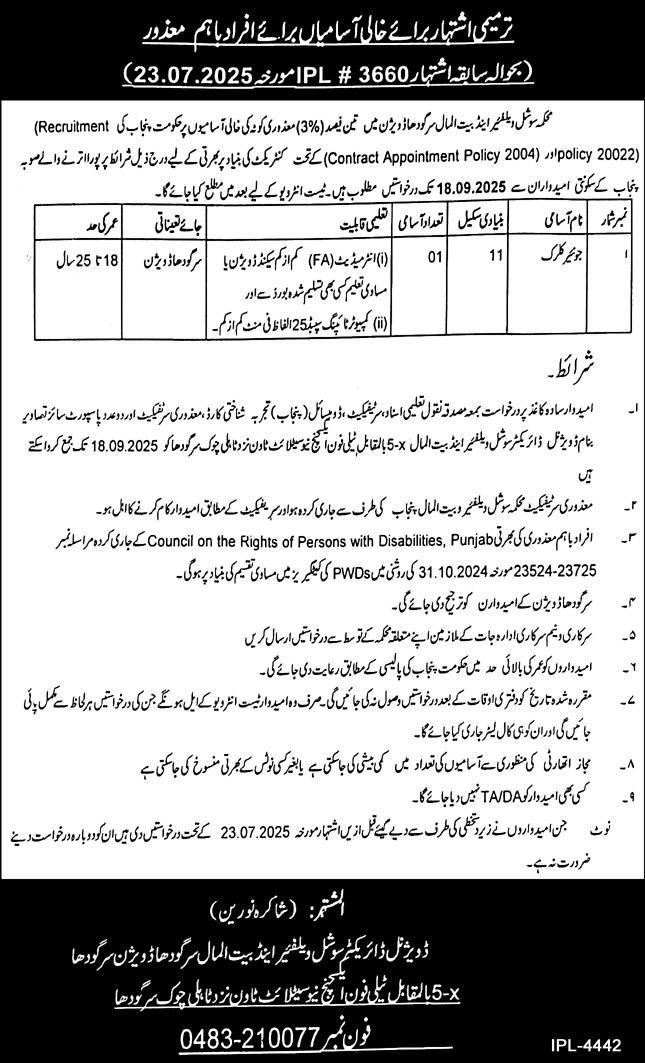 ترمیمی اشتہار برائے خالی آسامیاں برائے افراد باہم معذور
(بحوالہ سابقہ اشتہار IPL # 3660 مورخہ 23.07.2025)
محکمہ سوشل ویلفیئر اینڈ بیت المال سرگودھا ڈویژن میں تین فیصد (3%) معذوری کوٹہ کی خالی آسامیوں پر حکومت پنجاب کی (Recruitment
policy 20022) اور (Contract Appointment Policy 2004) کے تحت کنٹریکٹ کی بنیاد پر بھرتی کے لیے درج ذیل شرائط پر پورا اترنے والے صوبہ
پنجاب کے سکونتی امیدواران سے 18.09.2025 تک درخواستیں مطلوب ہیں۔ ٹیسٹ انٹرویو کے لیے بعد میں مطلع کیا جائے گا۔
نمبر شمار نام آسامی بنیادی سکیل تعداد آسامی تعلیمی قابلیت جائے تعیناتی عمر کی حد
۱ جونیئر کلرک 11 01 (i) انٹرمیڈیٹ (FA) کم از کم سیکنڈ ڈویژن یا سرگودھا ڈویژن 18 تا 25 سال
مساوی تعلیم کسی بھی تسلیم شدہ بورڈ سے اور
(ii) کمپیوٹر ٹائپنگ سپیڈ 25 الفاظ فی منٹ کم از کم۔
شرائط۔
۱۔ امیدوار سادہ کاغذ پر درخواست بمعہ مصدقہ نقول تعلیمی اسناد، سرٹیفیکیٹ، ڈومیسائل (پنجاب) تجربہ شناختی کارڈ، معذوری سرٹیفکیٹ اور دو عدد پاسپورٹ سائز تصاویر
بنام ڈویژنل ڈائریکٹر سوشل ویلفیئر اینڈ بیت المال 5-x بالمقابل ٹیلی فون ایکسچینج نیو سیٹلائٹ ٹاون نزد ٹاہلی چوک سرگودھا کو 18.09.2025 تک جمع کروا سکتے
ہیں
۲۔ معذوری سرٹیفکیٹ محکمہ سوشل ویلفیئر و بیت المال پنجاب کی طرف سے جاری کردہ ہو اور سرٹیفکیٹ کے مطابق امیدوار کام کرنے کا اہل ہو۔
۳۔ افراد باہم معذوری کی بھرتی Council on the Rights of Persons with Disabilities, Punjab کے جاری کردہ مراسلہ نمبر
23524-23725 مورخہ 31.10.2024 کی روشنی میں PWDs کی کیٹگریز میں مساوی تقسیم کی بنیاد پر ہوگی۔
۴۔ سرگودھا ڈویژن کے امیدواران کو ترجیح دی جائے گی۔
۵۔ سرکاری و نیم سرکاری ادارہ جات کے ملازمین اپنے متعلقہ محکمہ کے توسط سے درخواستیں ارسال کریں
۶۔ امیدواروں کو عمر کی بالائی حد میں حکومت پنجاب کی پالیسی کے مطابق رعایت دی جائے گی۔
۷۔ مقررہ شدہ تاریخ کو دفتری اوقات کے بعد درخواستیں وصول نہ کی جائیں گی۔ صرف وہ امیدوار ٹیسٹ انٹرویو کے اہل ہونگے جن کی درخواستیں ہر لحاظ سے مکمل پائی
جائیں گی اور ان کو ہی کال لیٹر جاری کیا جائے گا۔
۸۔ مجاز اتھارٹی کی منظوری سے آسامیوں کی تعداد میں کمی بیشی کی جا سکتی ہے یا بغیر کسی نوٹس کے بھرتی منسوخ کی جا سکتی ہے
۹۔ کسی بھی امیدوار کو TA/DA نہیں دیا جائے گا۔
نوٹ جن امیدواروں نے زیر دستخطی کی طرف سے دیے گئے قبل ازیں اشتہار مورخہ 23.07.2025 کے تحت درخواستیں دی ہیں ان کو دوبارہ درخواست دینے
ضرورت نہ ہے۔
المشتہر: (شاکرہ نورین)
ڈویژنل ڈائریکٹر سوشل ویلفیئر اینڈ بیت المال سرگودھا ڈویژن سرگودھا
5-x بالمقابل ٹیلی فون ایکسچینج نیو سیٹلائٹ ٹاون نزد ٹاہلی چوک سرگودھا
فون نمبر 0483-210077
IPL-4442